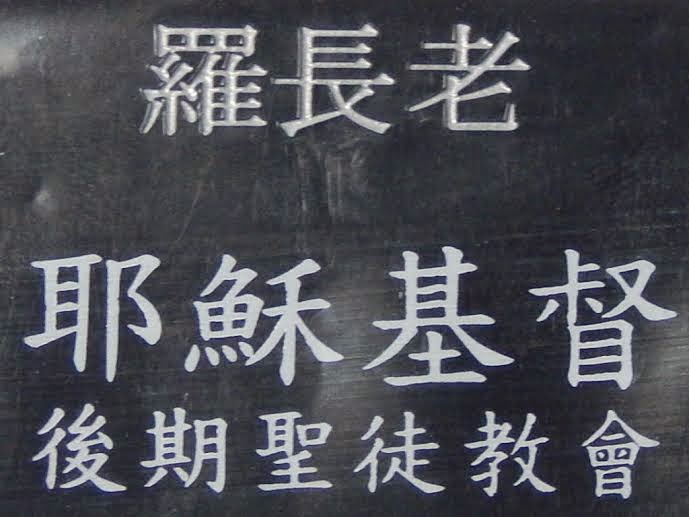 羅長老
耶穌基督
後期聖徒教會